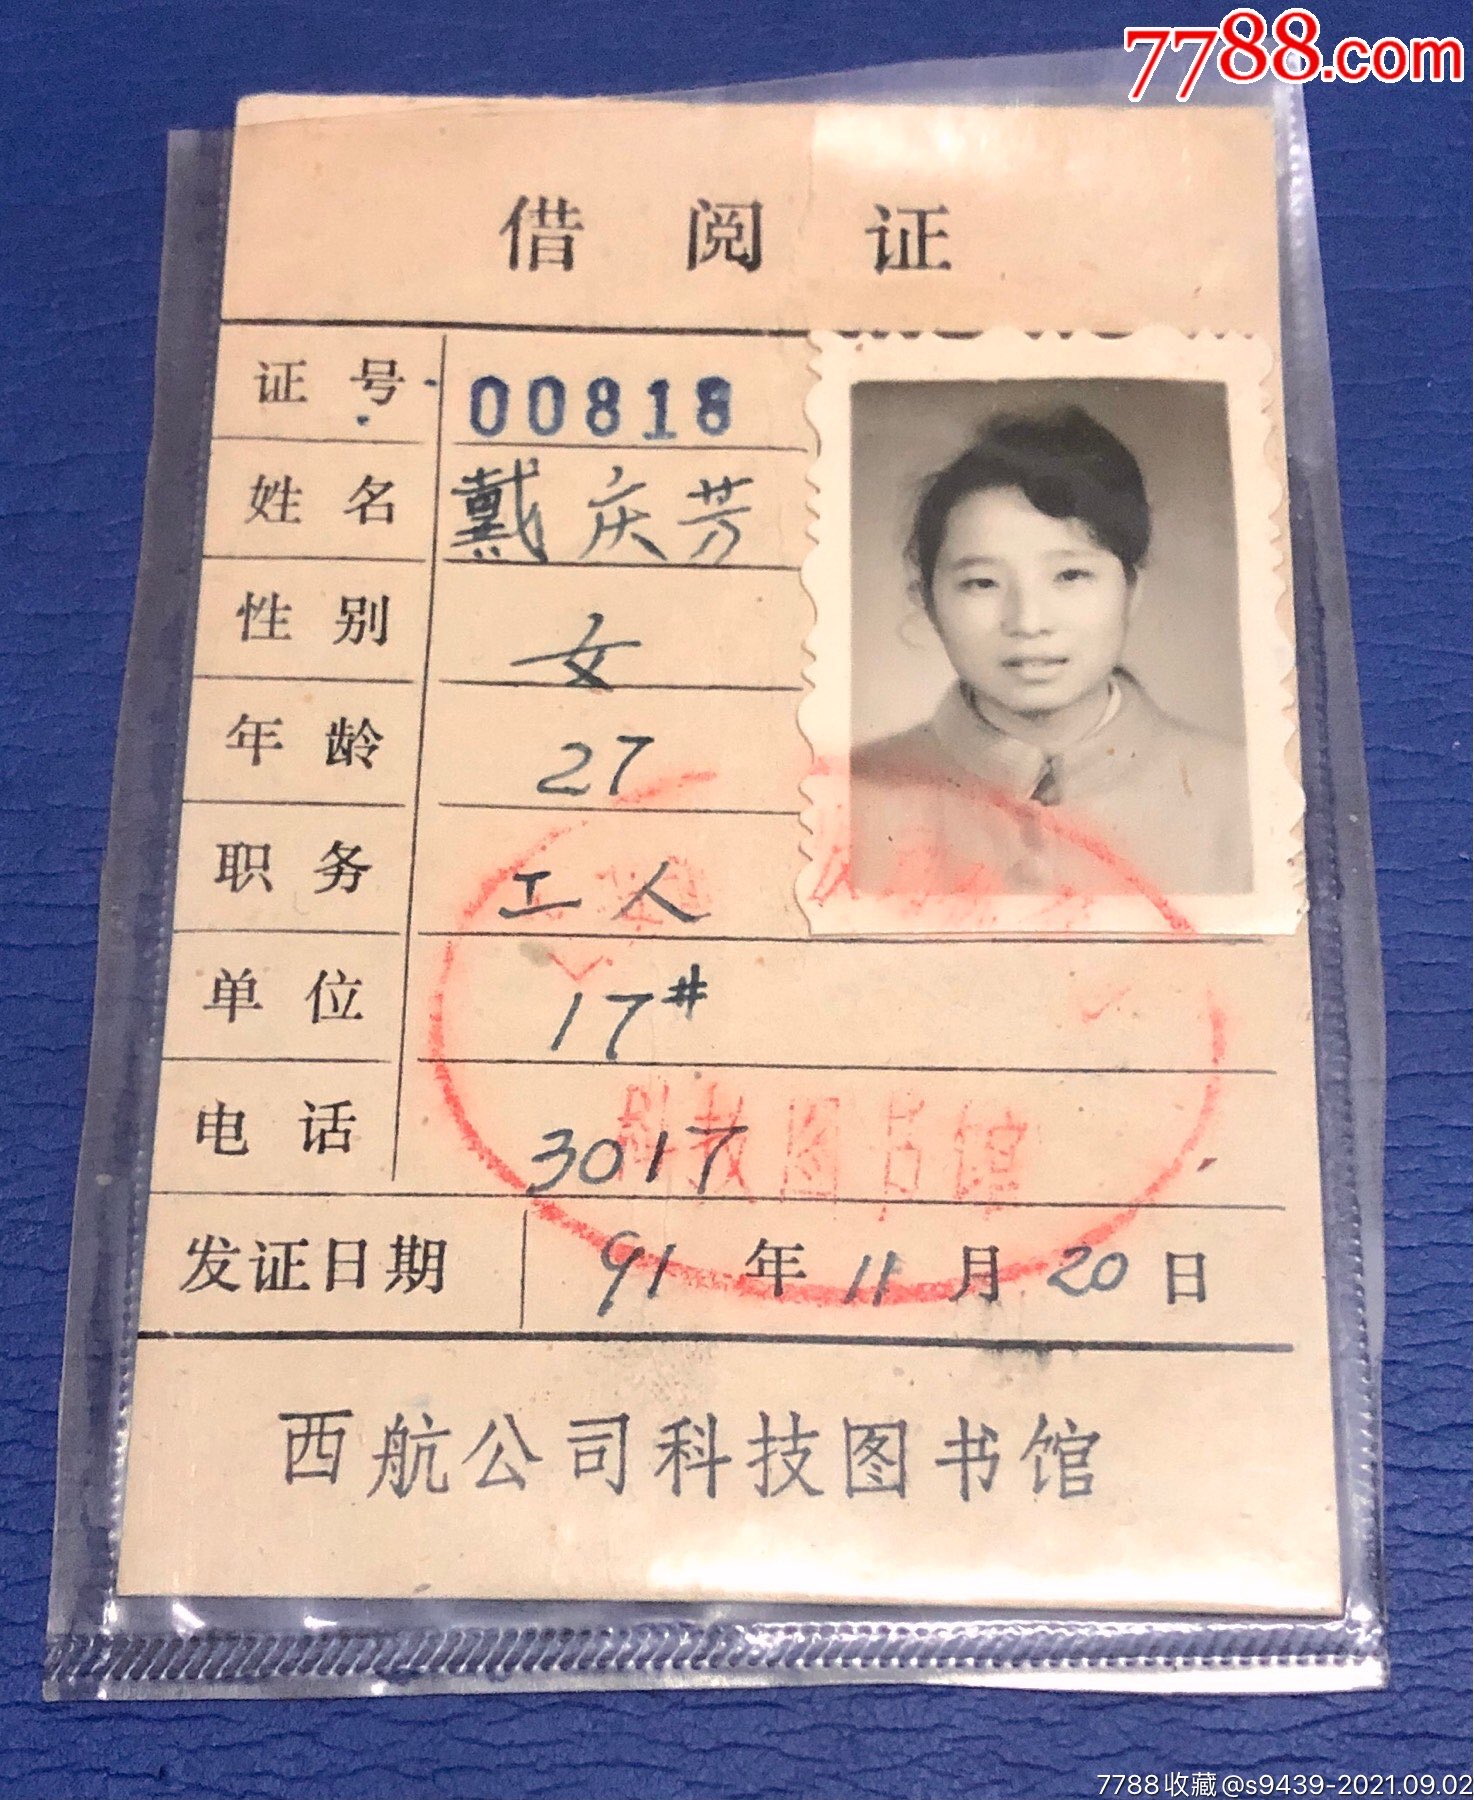 7788.com
借阅证
证号 00818
姓名 戴庆芳
性别 女
年龄 27
职务 工人
单位 17#
电话 3017
科技图书馆
发证日期 91年11月20日
西航公司科技图书馆
7788收藏@s9439-2021.09.02